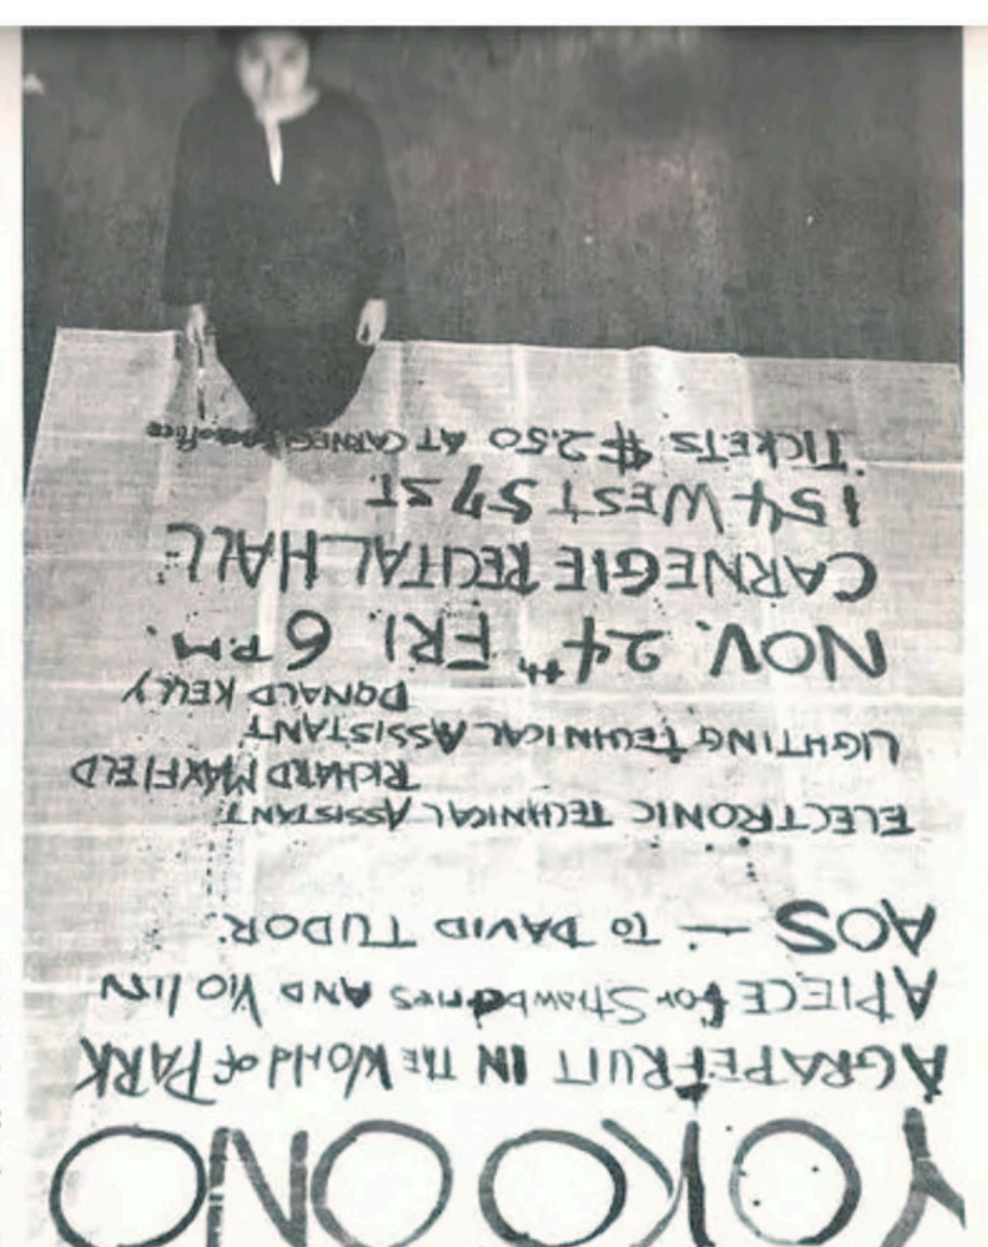 YOKO ONO
A GRAPEFRUIT IN THE WORld of PARK
A PIECE for StrawbeRries AND VIOLIN
AOS — TO DAVID TUDOR.
ELECTRONIC TECHNICAL ASSISTANT
RICHARD MAXFIELD
LIGHTING TECHNICAL ASSISTANT
DONALD KELLY
NOV. 24th FRI. 6 P.M.
CARNEGIE RECITAL HALL
154 WEST 57 ST.
TICKETS $2.50 AT CARNEGIE box office